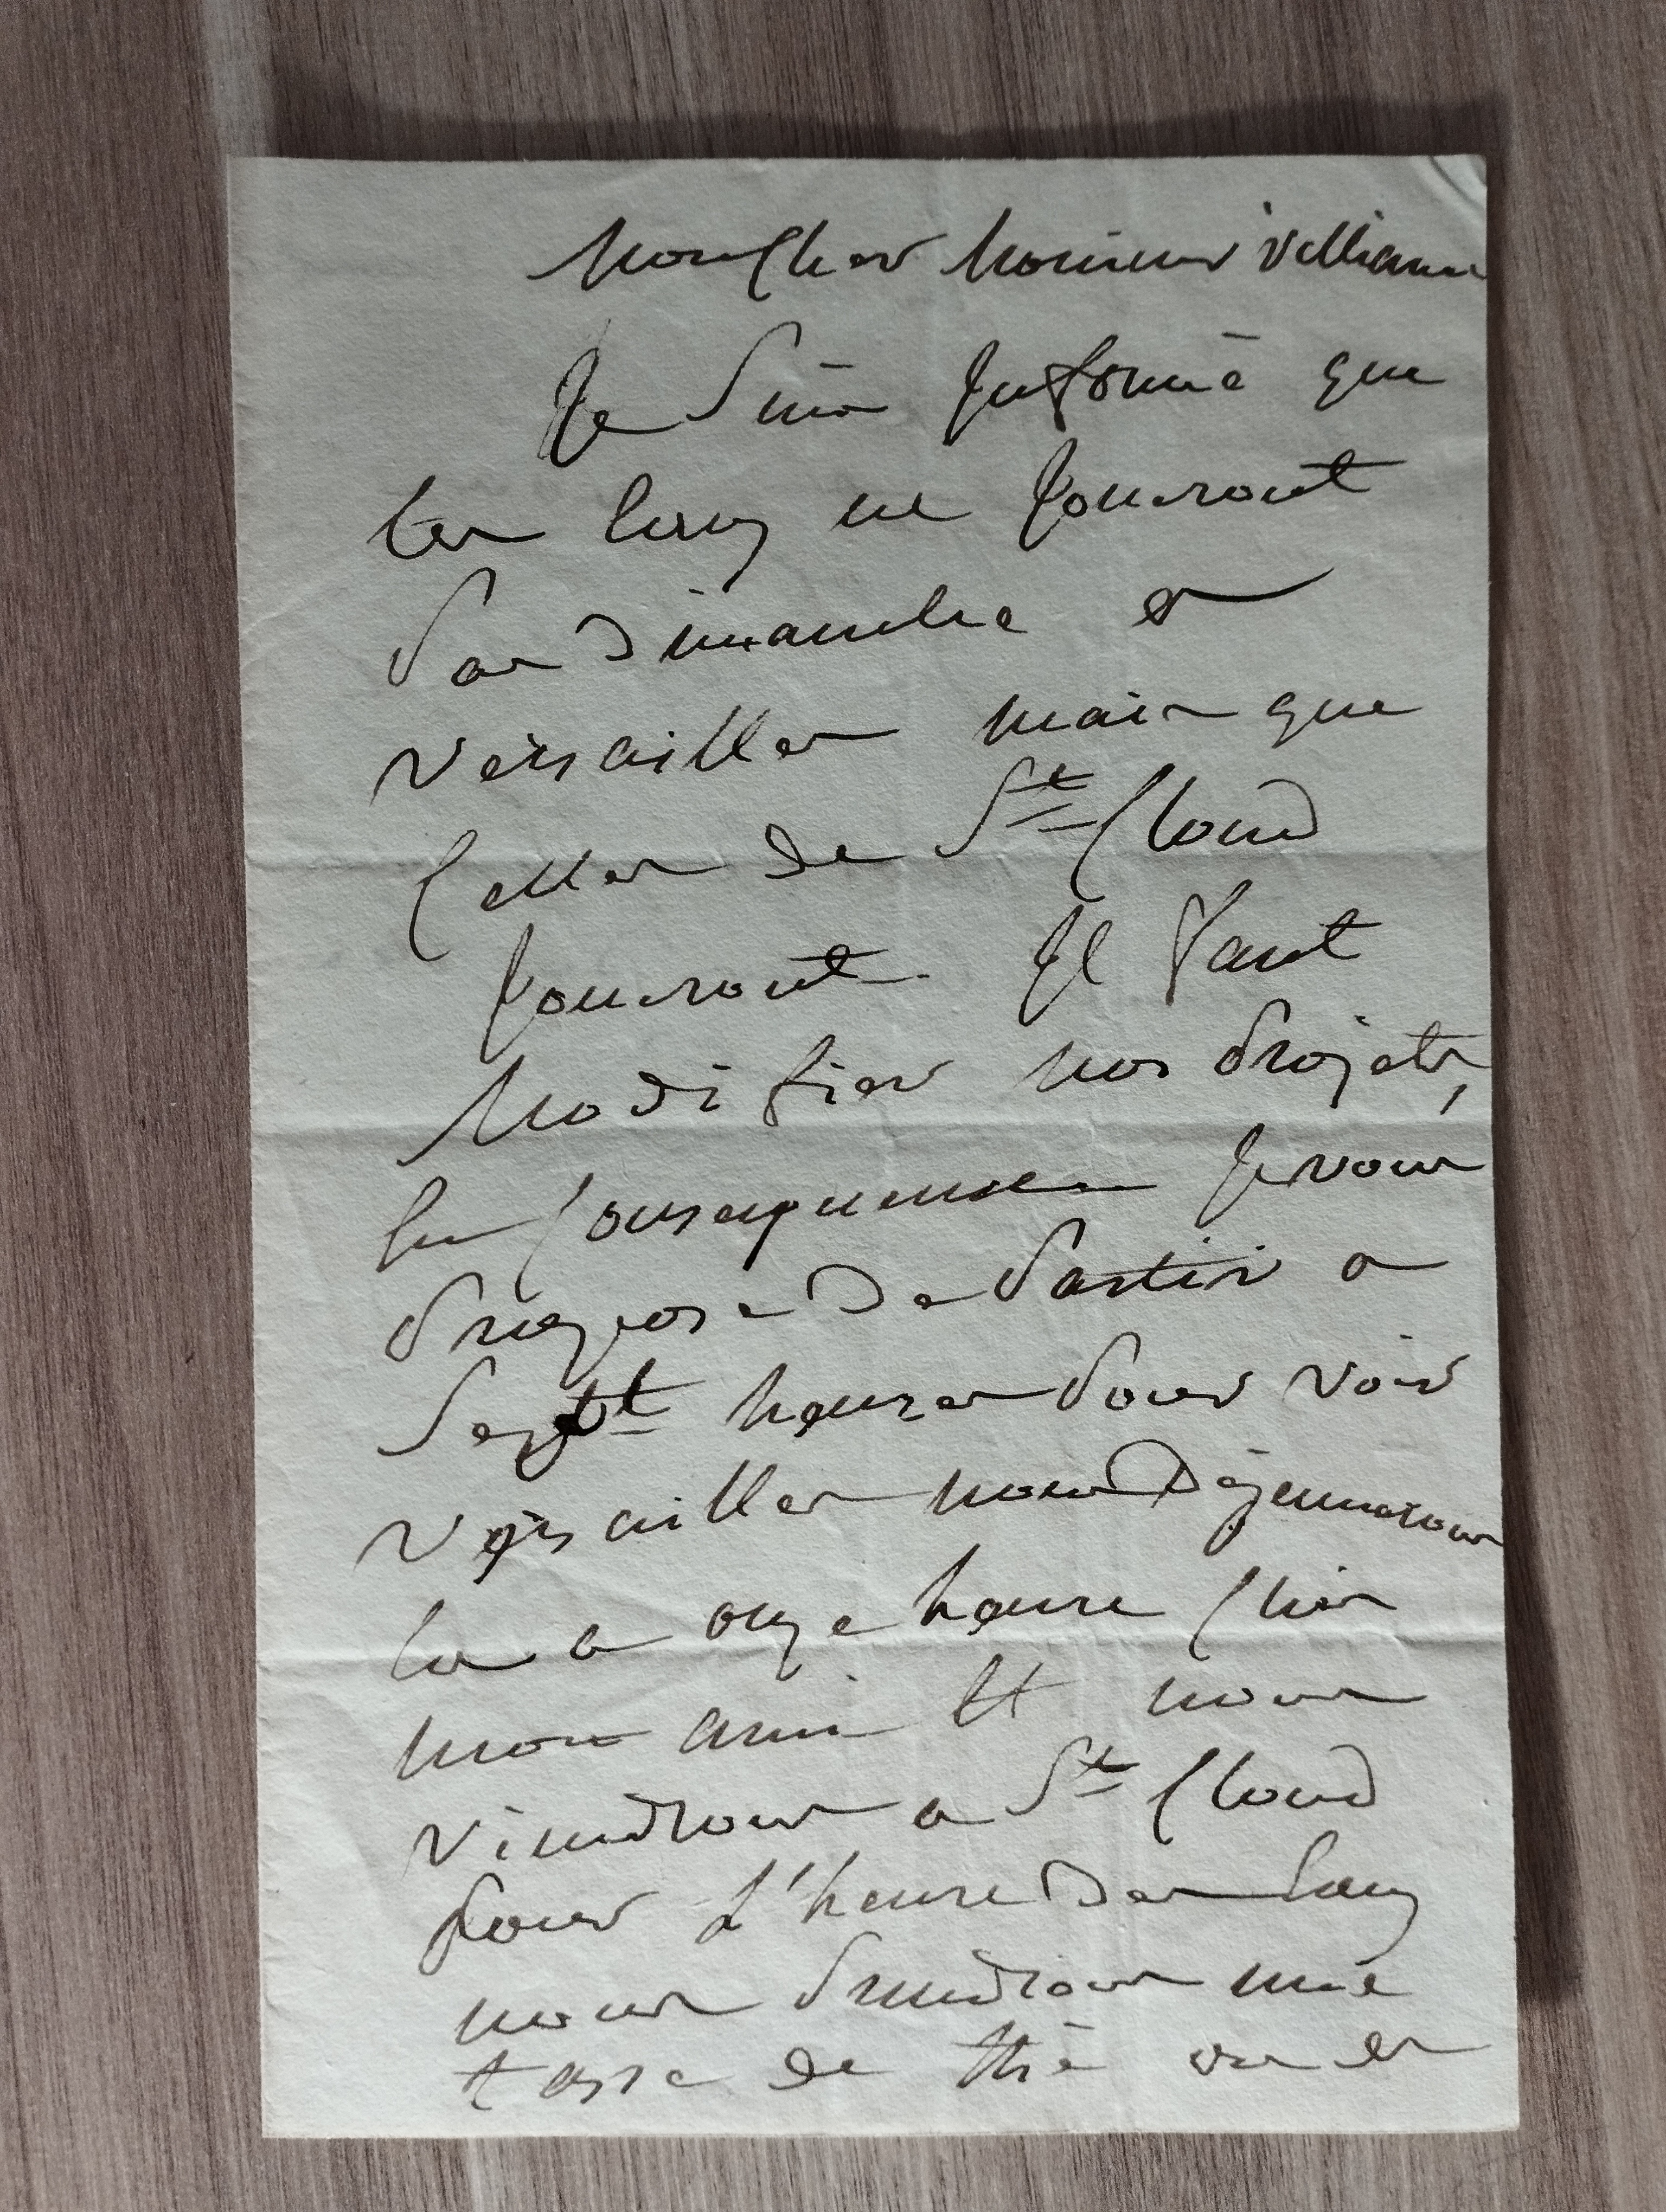 Mon Cher Monsieur Villiaume
Je Suis Informé que
les Eaux ne Joueront
Pas Dimanche a
Versailles mais que
Celles de St Cloud
Joueront. Il Faut
Modifier nos Projets,
En Consequence Je vous
Propose De Partir a
Septt heures Pour Voir
Versailles nous Déjeunerons
la a onze heure Chez
mon ami Et nous
Viendrons a St Cloud
Pour L'heure Des Eaux
nous Prendrons une
tasse de thé